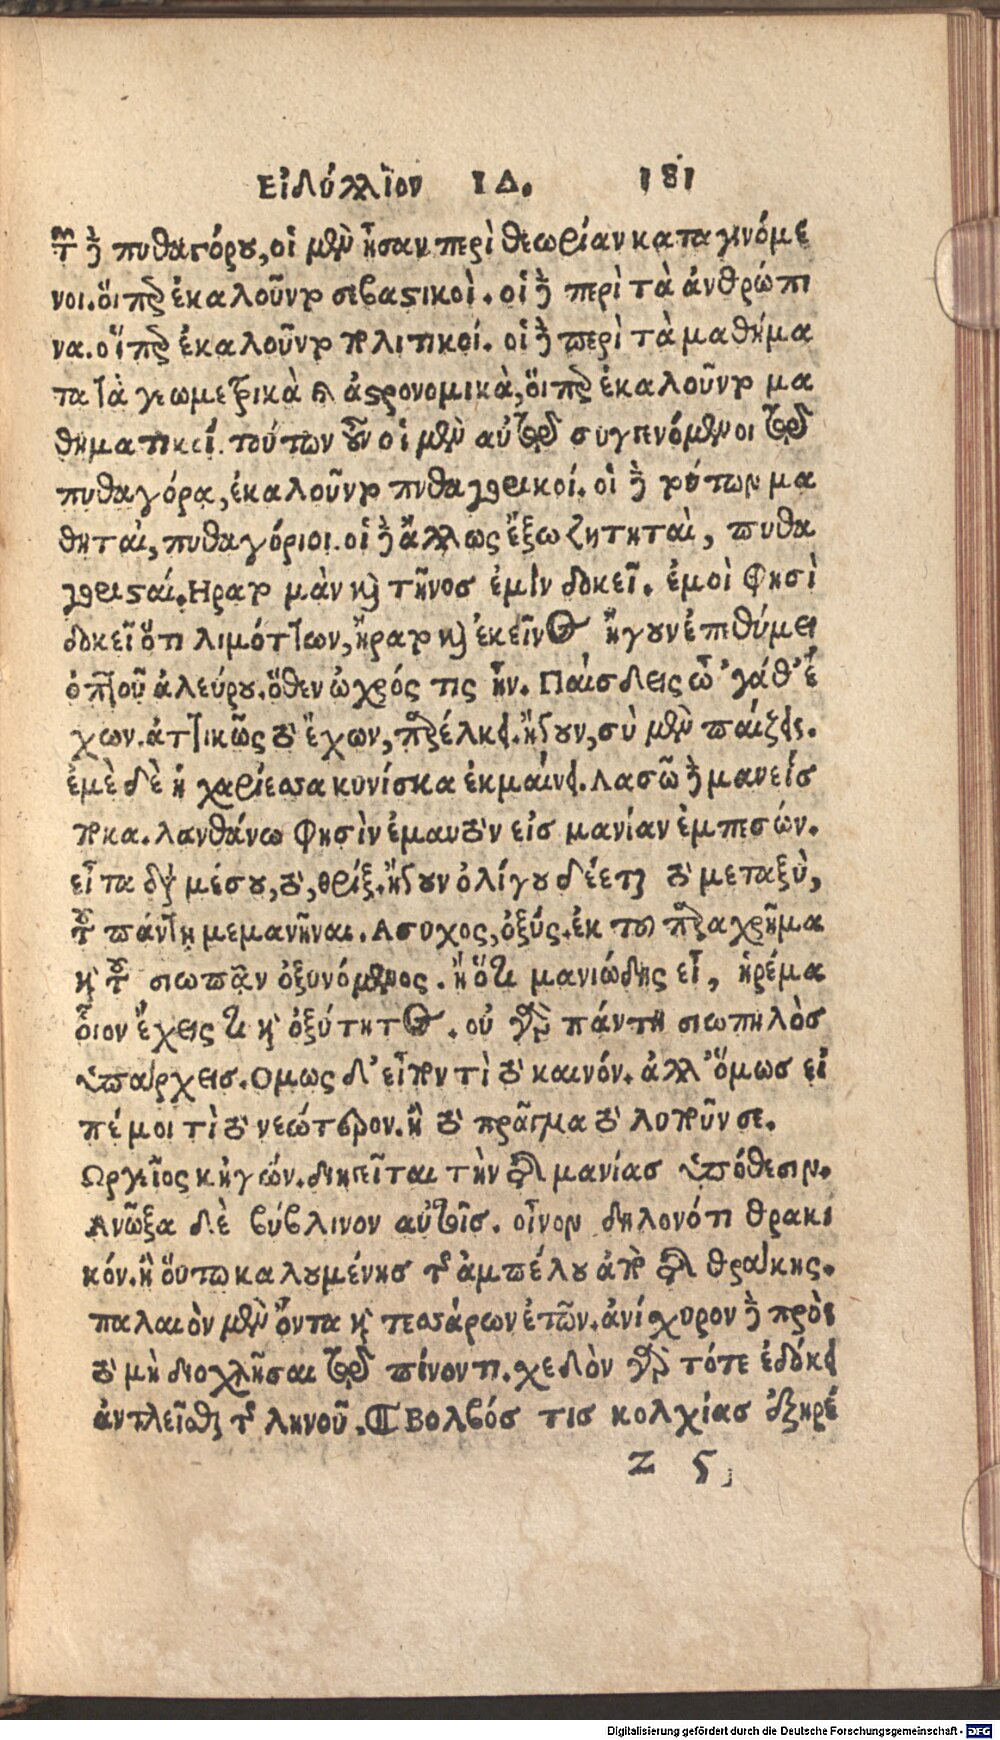 Εἰδύλλιον ΙΔ. 181
τῶν δὲ πυθαγόρου, οἱ μὲν ἦσαν περὶ θεωρίαν καταγινόμε
νοι. οἵπερ ἐκαλοῦντο σεβαστικοὶ. οἱ δὲ περὶ τὰ ἀνθρώπι
να. οἵπερ ἐκαλοῦντο πολιτικοί. οἱ δὲ περὶ τὰ μαθήμα
τα τὰ γεωμετρικὰ καὶ ἀστρονομικὰ, οἵπερ ἐκαλοῦντο μα
θηματικοί. τούτων οὖν οἱ μὲν αὐτῷ συγγινόμενοι τῷ
πυθαγόρᾳ, ἐκαλοῦντο πυθαγορικοί. οἱ δὲ τούτων μα
θηταὶ, πυθαγόριοι. οἱ δὲ ἄλλως ἔξω ζητηταὶ, πυθα
γορισταί. Ηρατο μὰν καὶ τῆνος ἐμὶν δοκεῖ. ἐμοὶ φησὶ
δοκεῖ ὅτι λιμόττων, ἤρατο καὶ ἐκεῖνος ἤγουν ἐπιθύμει
ὀπτοῦ ἀλεύρου. ὅθεν ὠχρός τις ἦν. Παίσδεις ὦ 'γάθ' ἔ
χων. ἀττικῶς τὸ ἔχων, παρέλκει. ἤγουν, σὺ μὲν παίζεις.
ἐμὲ δὲ ἡ χαρίεσσα κυνίσκα ἐκμαίνει. Λασῶ δὲ μανείς
ποκα. λανθάνω φησὶν ἐμαυτὸν εἰς μανίαν ἐμπεσών.
εἶτα διὰ μέσου, τὸ, θρίξ. ἤγουν ὀλίγου δέεται τὸ μεταξὺ,
τοῦ πάντη μεμανῆναι. Ασυχος, ὀξύς. ἐκ τοῦ παραχρῆμα
καὶ τοῦ σιωπᾶν ὀξυνόμενος. ἢ ὅτι μανιώδης εἶ, ἠρέμα
οἷον ἔχεις τι καὶ ὀξύτητος. οὐ γὰρ πάντη σιωπηλὸς
ὑπάρχεις. Ομως δ' εἶπον τὶ τὸ καινόν. ἀλλ' ὅμως εἰ
πέ μοι τὶ τὸ νεώτερον. ἢ τὸ πρᾶγμα τὸ λυποῦν σε.
Ωργεῖος κἠγών. διηγεῖται τὴν τῆς μανίας ὑπόθεσιν.
Ανῶξα δὲ βύβλινον αὐτοῖς. οἶνον δηλονότι θρακι
κόν. ἢ οὕτω καλουμένης τῆς ἀμπέλου ἀπὸ τῆς θράκης.
παλαιὸν μὲν ὄντα καὶ τεσσάρων ἐτῶν. ἀνίσχυρον δὲ πρὸς
τὸ μὴ διοχλῆσαι τῷ πίνοντι. σχεδὸν γὰρ τότε ἐδόκει
ἀντλεῖσθαι τοῦ ληνοῦ. ¶ Βολβός τις κολχίας ἐξηρέ
Z 5
Digitalisierung gefördert durch die Deutsche Forschungsgemeinschaft - DFG